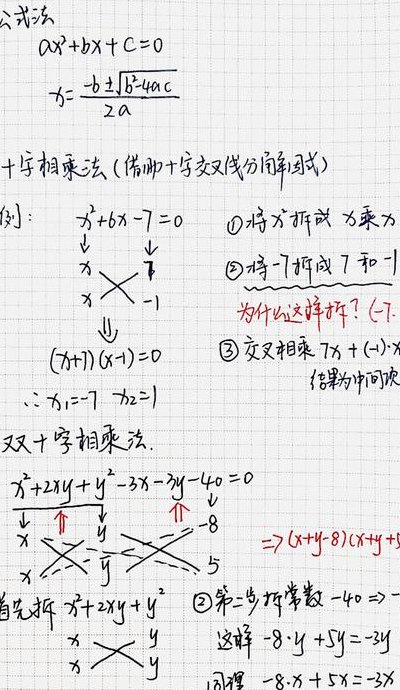 公式法
ax²+bx+c=0
x=(-b±√(b²-4ac))/2a
十字相乘法(借助十字交叉线分解因式)
例: x²+6x-7=0
x 7
x -1
(x+7)(x-1)=0
∴x₁=-7 x₂=1
①将x²拆成 x乘x
②将-7拆成 7 和 -1
为什么这样拆?(-7.
③交叉相乘 7x+(-1)·x
结果为中间项
双十字相乘法.
x²+2xy+y²-3x-3y-40=0
x y -8
x y 5
=>(x+y-8)(x+y+5
首先拆 x²+2xy+y²
x y
x y
②第二步拆常数 -40 => -
这样 -8·y+5y=-3y
同理 -8·x+5x=-3x